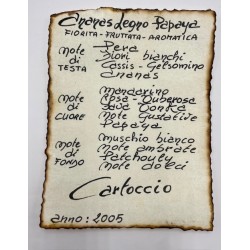 Ananas Legno Papaya
FIORITA - FRUTTATA - AROMATICA
NOTE DI TESTA
Pera
Fiori bianchi
Cassis - Gelsomino
Ananas
NOTE DI CUORE
mandarino
Rosa - Tuberosa
Fava Tonka
Note Gustative
Papaya
NOTE DI FONDO
muschio bianco
Note ambrate
Patchouly
Note dolci
Cartoccio
anno: 2005